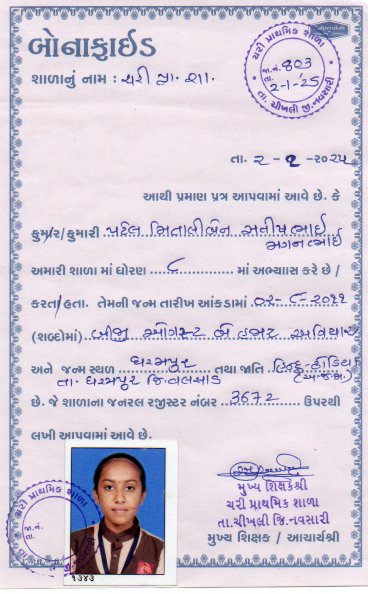 બોનાફાઈડ
શાળાનું નામ : ચરી પ્રા. શા.
ચરી પ્રાથમિક શાળા
જા.નં. 803
તા. 2-1-'25
તા. ચીખલી જી. નવસારી
તા. ૨-૧-૨૦૨૫
આથી પ્રમાણ પત્ર આપવામાં આવે છે. કે
કુમાર/કુમારી પટેલ મિતાલીબેન સતીષભાઈ
મગનભાઈ
અમારી શાળા માં ધોરણ ૮ માં અભ્યાસ કરે છે /
કરતા/હતા. તેમની જન્મ તારીખ આંકડામાં ૦૨-૮-૨૦૧૧
(શબ્દોમાં) બીજી ઓગસ્ટ બે હજાર અગિયાર
અને જન્મ સ્થળ ધરમપુર તથા જાતિ હિન્દુ-ધોડિયા
તા. ધરમપુર જિ. વલસાડ (અ.જ.જા.)
છે. જે શાળાના જનરલ રજીસ્ટર નંબર 3672 ઉપરથી
લખી આપવામાં આવે છે.
મુખ્ય શિક્ષકેશ્રી
ચરી પ્રાથમિક શાળા
તા.ચીખલી જિ.નવસારી
મુખ્ય શિક્ષક / આચાર્યશ્રી
ચરી પ્રાથમિક શાળા
જા.નં.
તા.
૧૩૪૩